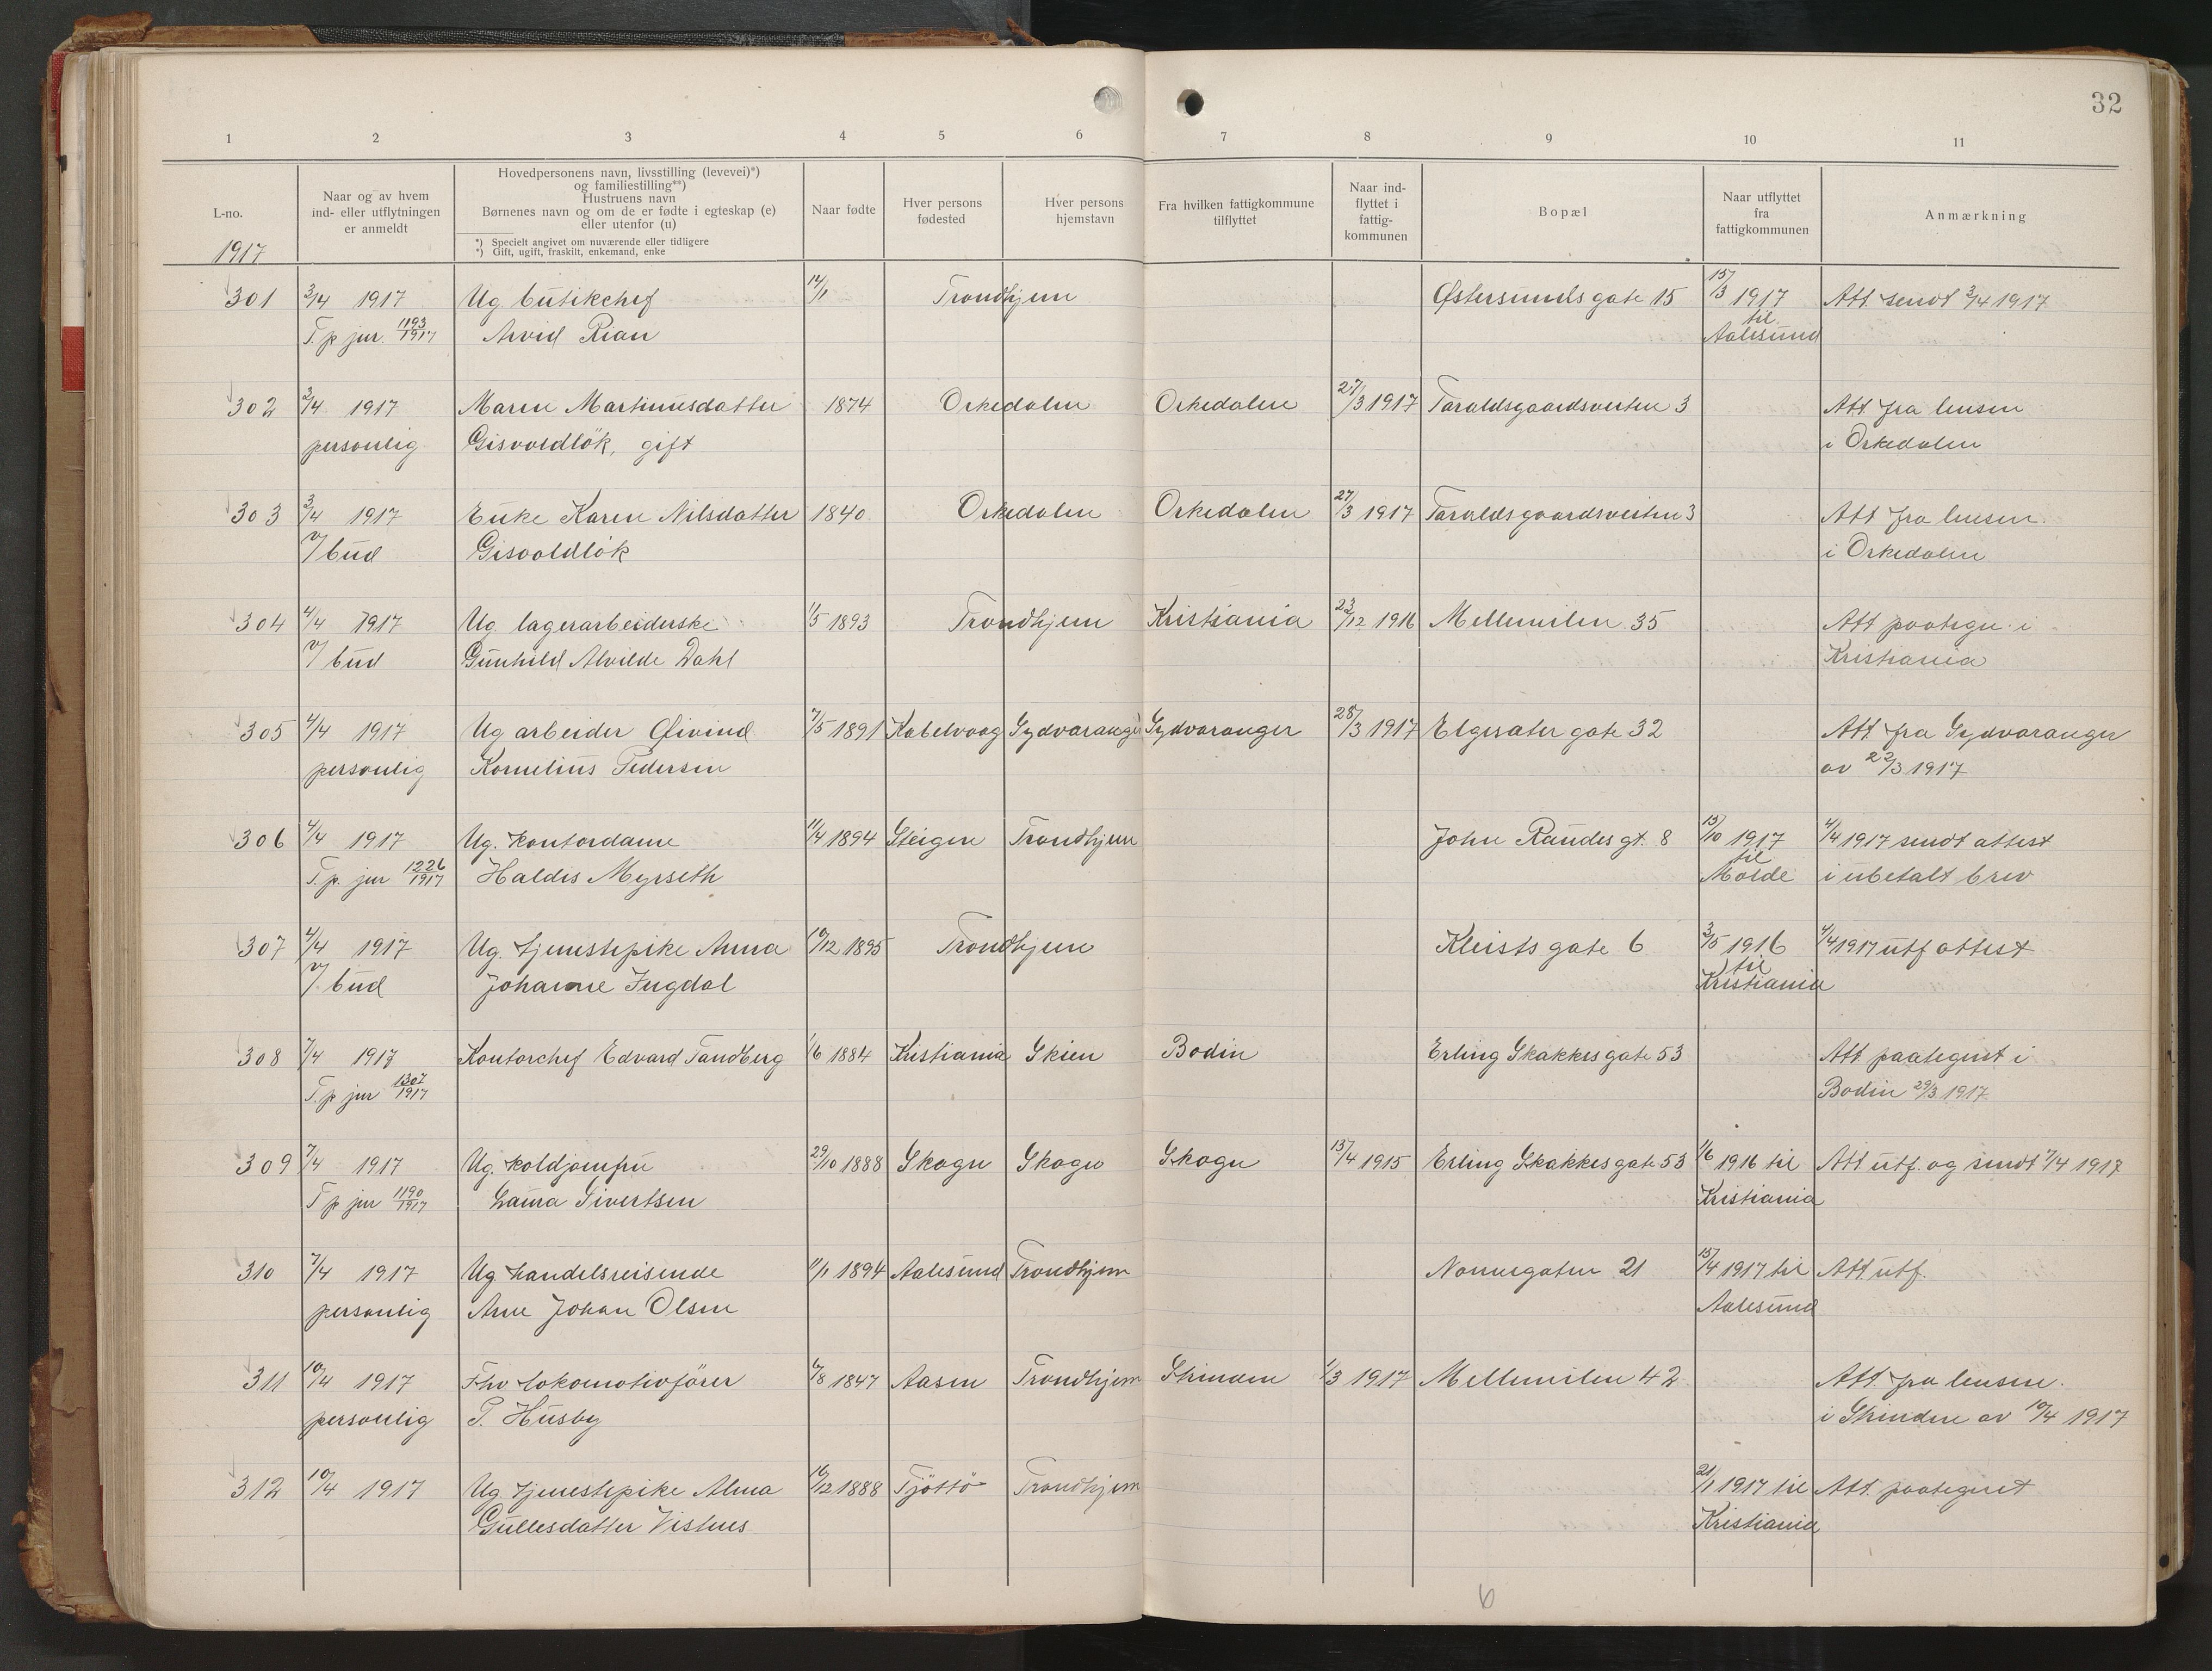 32
1 2 3 4 5 6 7 8 9 10 11
L-no.
1917
Naar og av hvem
ind- eller utflytningen
er anmeldt
Hovedpersonens navn, livsstilling (levevei)*)
og familiestilling**)
Hustruens navn
Børnenes navn og om de er fødte i egteskap (e)
eller utenfor (u)
*) Specielt angivet om nuværende eller tidligere
*) Gift, ugift, fraskilt, enkemand, enke
Naar fødte
Hver persons
fødested
Hver persons
hjemstavn
Fra hvilken fattigkommune
tilflyttet
Naar ind-
flyttet i
fattig-
kommunen
Bopæl
Naar utflyttet
fra
fattigkommunen
Anmærkning
301 3/4 1917 Ug. butikchef 14/1 Trondhjem Østersunds gate 15 15/3 1917 Att. sendt 3/4 1917
T. p. jur. 1193/1917 Arvid Rian til
Aalesund
302 3/4 1917 Maren Martinusdatter 1874 Orkedalen Orkedalen 27/3 1917 Taraldsgaardsveiten 3 Att. fra lensm
personlig Gisvoldløk, gift i Orkedalen
303 3/4 1917 Enke Karen Nilsdatter 1840 Orkedalen Orkedalen 27/3 1917 Taraldsgaardsveiten 3 Att. fra lensm.
v/ bud Gisvoldløk i Orkedalen
304 4/4 1917 Ug. lagerarbeiderske 1/5 1893 Trondhjem Kristiania 23/12 1916 Mellemilen 35 Att. paategn. i
v/ bud Gunhild Alvilde Dahl Kristiania
305 4/4 1917 Ug arbeider Øivind 7/5 1891 Kabelvaag Sydvaranger Sydvaranger 28/3 1917 Elgesæter gate 32 Att. fra Sydvaranger
personlig Kornelius Pedersen av 22/3 1917
306 4/4 1917 Ug. kontordame 11/4 1894 Steigen Trondhjem John Raudes gt. 8 15/10 1917 4/4 1917 sendt attest
T. p. jur 1226/1917 Haldis Myrseth til
Molde i ubetalt brev
307 4/4 1917 Ug. tjenestepike Anna 10/12 1895 Trondhjem Kleists gate 6 3/5 1916 4/4 1917 utf. attest
v/ bud Johanne Ingdal til
Kristiania
308 7/4 1917 Kontorchef Edvard Tandberg 1/6 1884 Kristiania Skien Bodin Erling Skakkes gate 53 Att. paategnet i
T. p jur 1307/1917 Bodin 29/3 1917
309 7/4 1917 Ug. koldjomfru 29/10 1888 Skogn Skogn Skogn 13/4 1915 Erling Skakkes gate 53 1/6 1916 til Att. utf. og sendt 7/4 1917
T p jur 1190/1917 Laura Sivertsen Kristiania
310 7/4 1917 Ug. handelsreisende 1894 Aalesund Trondhjem Nonnegaten 21 15/4 1917 til Att. utf.
personlig Arne Johan Olsen Aalesund
311 10/4 1917 Fhv. lokomotivfører 6/8 1847 Aasen Trondhjem Strinden 1/3 1917 Mellemilen 42 Att. fra lensm.
personlig P. Husby i Strinden av 10/4 1917
312 10/4 1917 Ug. tjenestepike Alma 16/12 1888 Tjöttö Trondhjem 21/1 1917 til Att. paategnet
Gullesdatter Vistnes Kristiania
6